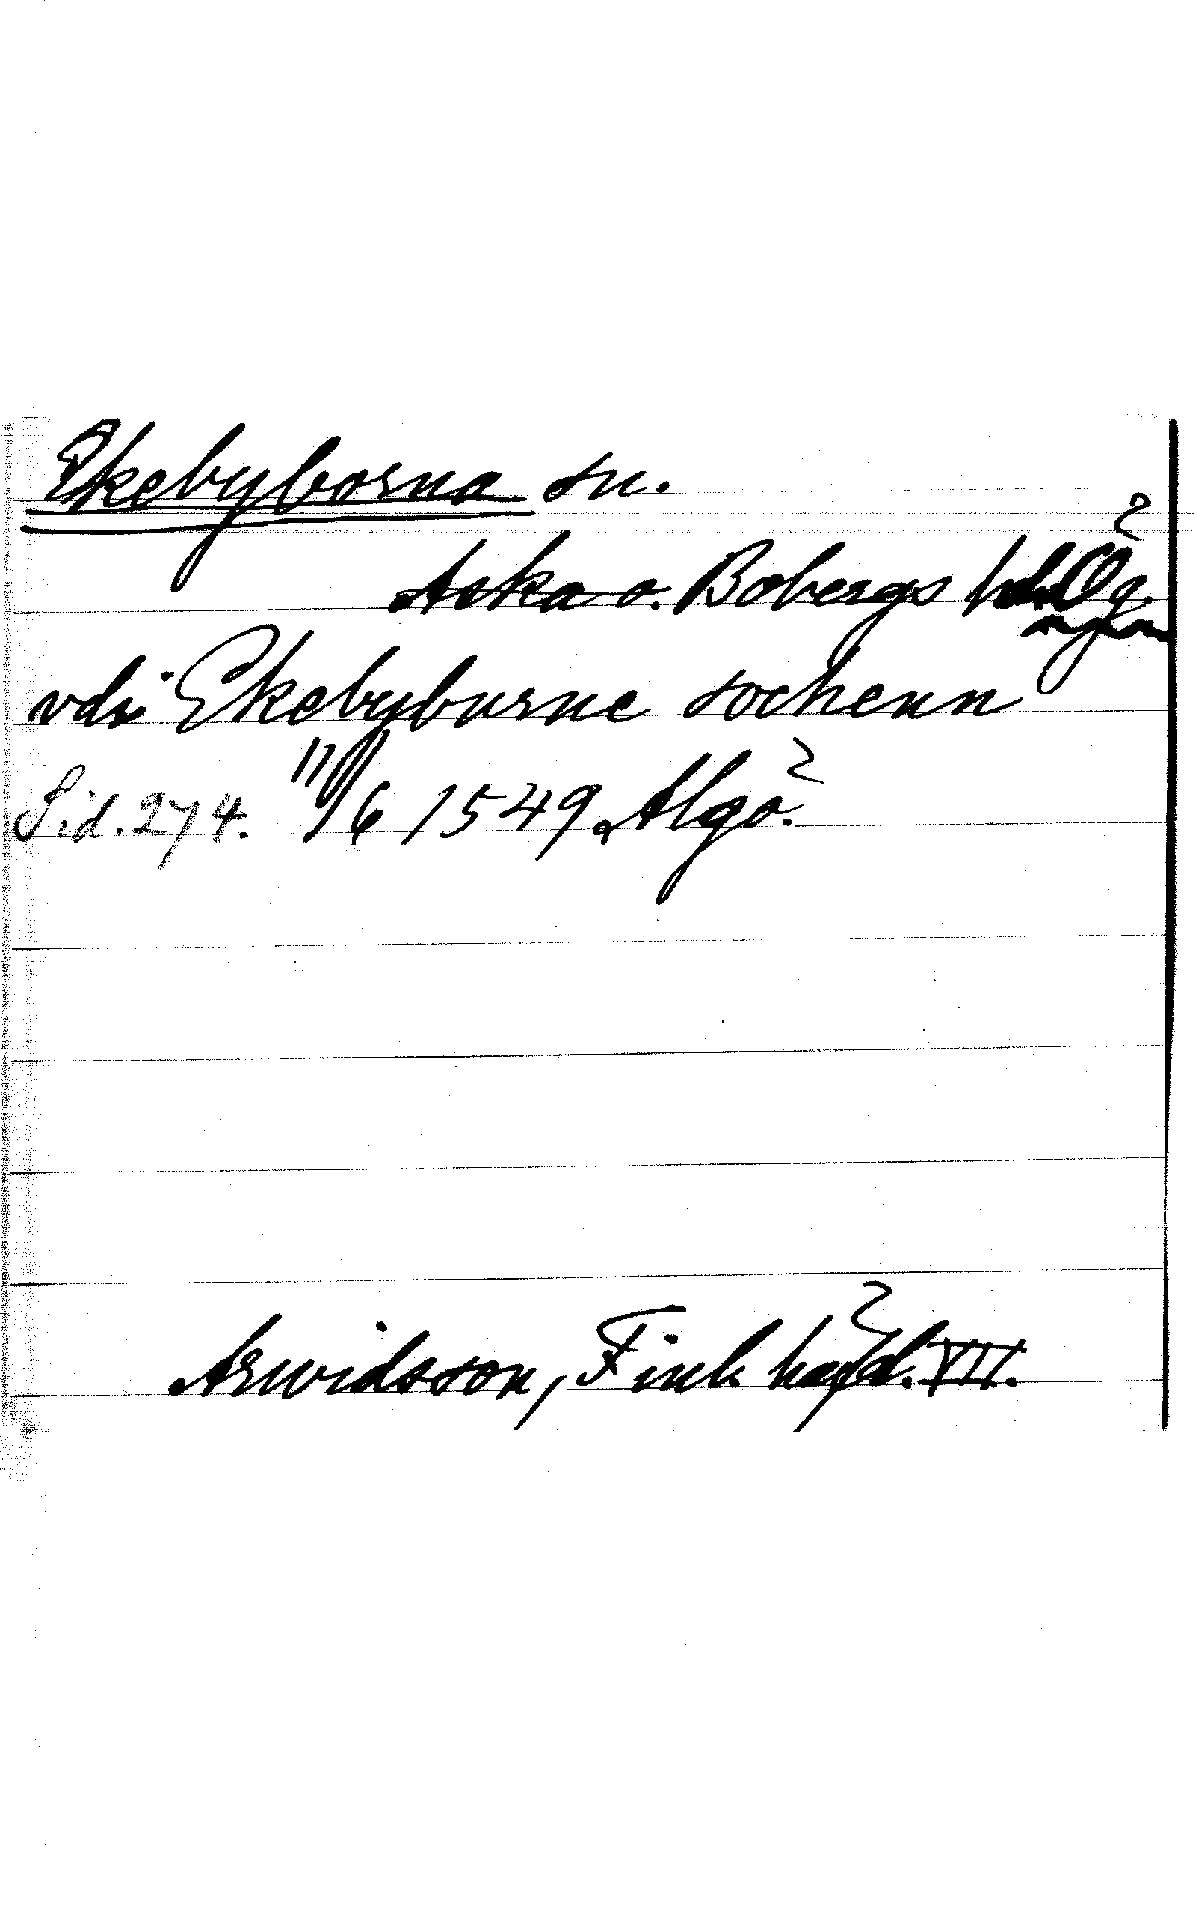 Ekebyborna sn.
Aska o. Bobergs hd Ög.
vdi Ekebyburne sochenn
Sid. 274. 11/6 1549. Algö.
Arwidsson, Finl. handl. VII.